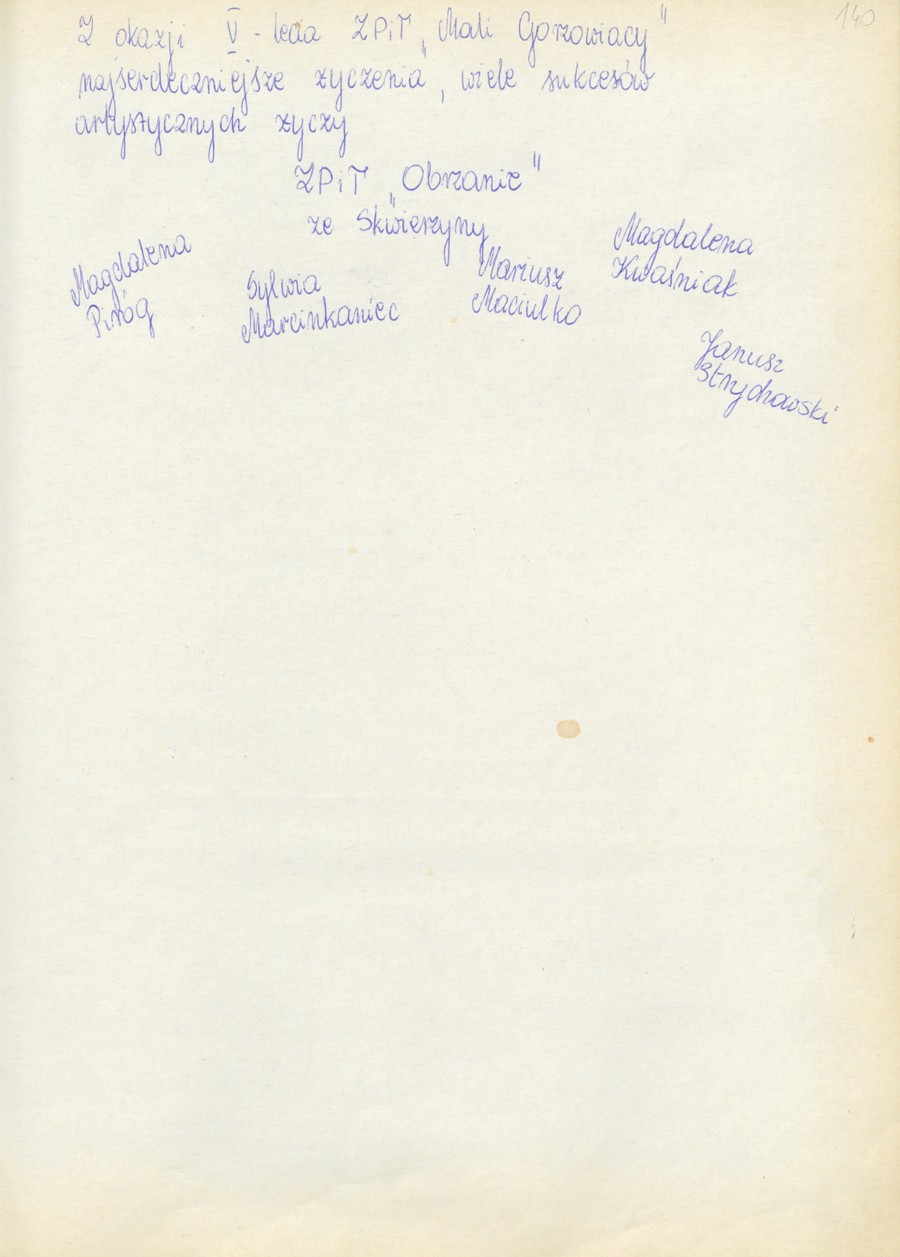 140
Z okazji V-lecia ZPiT „Mali Gorzowiacy"
najserdeczniejsze życzenia, wiele sukcesów
artystycznych życzy
ZPiT „Obrzanie"
ze Skwierzyny
Magdalena
Piróg
Sylwia
Marcinkaniec
Mariusz
Maciulko
Magdalena
Kwaśniak
Janusz
Strychowski